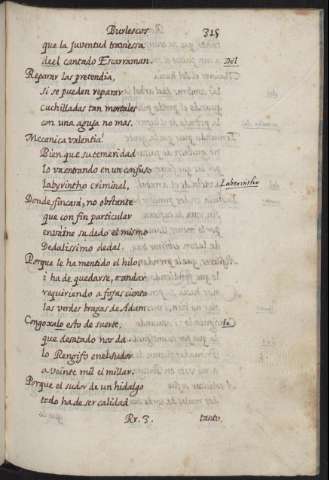 Burlescos 315
que la juventud traviessa
deel cantado Escarraman. Del
Reparar las pretendia,
si se pueden reparar
cuchilladas tan mortales
con una aguja no mas.
Mecanica valentia!
Bien que su temeridad
lo va entrando en un confuso
labyrintho criminal, Laberintho
Donde fincarà, no obstante
que con fin particular
envaine su dedo el mismo
Dedalissimo dedal.
Porque le ha mentido el hilo,
i ha de quedarse,
requiriendo a fojas ciento
las verdes bragas de Adam.
Congoxalo esto de suerte,
que desatado nos da
lo Rengifo en el sudor
a veinte mil el millar.
Porque el sudor de un hidalgo
todo ha de ser calidad
Rr. 3. tanto